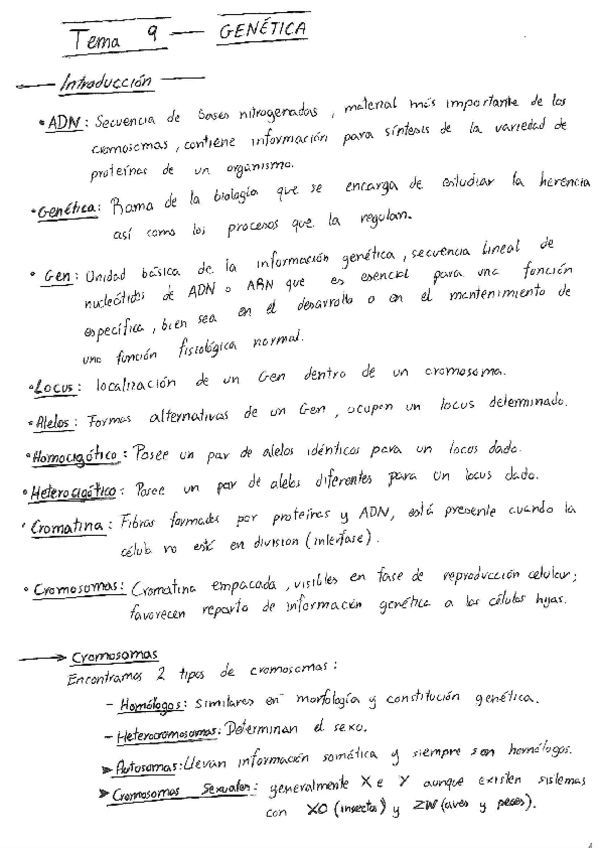 Tema 9 — GENÉTICA
— Introducción —
• ADN: Secuencia de bases nitrogenadas, material más importante de los
cromosomas, contiene información para síntesis de la variedad de
proteínas de un organismo.
• Genética: Rama de la biología que se encarga de estudiar la herencia
así como los procesos que la regulan.
• Gen: Unidad básica de la información genética, secuencia lineal de
nucleótidos de ADN o ARN que es esencial para una función
específica, bien sea en el desarrollo o en el mantenimiento de
una función fisiológica normal.
• Locus: localización de un Gen dentro de un cromosoma.
• Alelos: Formas alternativas de un Gen, ocupen un locus determinado.
• Homocigótico: Posee un par de alelos idénticos para un locus dado.
• Heterocigótico: Posee un par de alelos diferentes para un locus dado.
• Cromatina: Fibras formadas por proteínas y ADN, está presente cuando la
célula no está en division (interfase).
• Cromosomas: Cromatina empacada, visibles en fase de reproducción celular;
favorecen reparto de información genética a las células hijas.
→ Cromosomas
Encontramos 2 tipos de cromosomas:
- Homólogos: Similares en morfología y constitución genética.
- Heterocromosomas: Determinan el sexo.
➤ Autosomas: Llevan información somática y siempre son homólogos.
➤ Cromosomas Sexuales: generalmente X e Y aunque existen sistemas
con XO (insectos) y ZW (aves y peces).